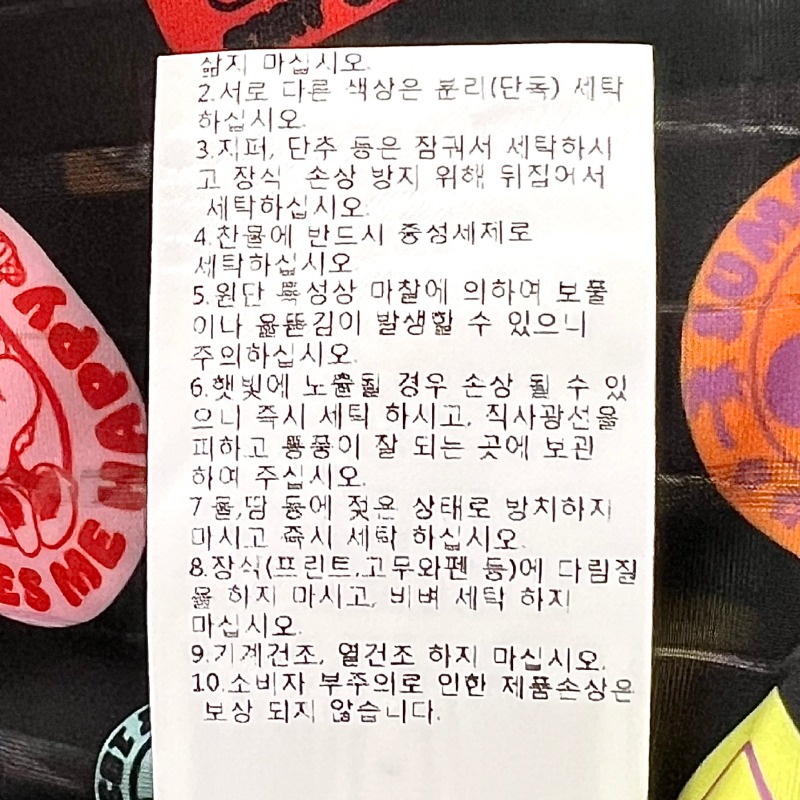 삶지 마십시오.
2.서로 다른 색상은 분리(단독) 세탁
하십시오.
3.지퍼, 단추 등은 잠궈서 세탁하시
고 장식 손상 방지 위해 뒤집어서
세탁하십시오.
4.찬물에 반드시 중성세제로
세탁하십시오
5.원단 특성상 마찰에 의하여 보풀
이나 올뜯김이 발생할 수 있으니
주의하십시오.
6.햇빛에 노출될 경우 손상 될 수 있
으니 즉시 세탁 하시고, 직사광선을
피하고 통풍이 잘 되는 곳에 보관
하여 주십시오.
7 물,땀 등에 젖은 상태로 방치하지
마시고 즉시 세탁 하십시오.
8.장식(프린트,고무와펜 등)에 다림질
을 하지 마시고, 비벼 세탁 하지
마십시오.
9.기계건조, 열건조 하지 마십시오.
10.소비자 부주의로 인한 제품손상은
보상 되지 않습니다.
HAPPY
ES ME HAPPY